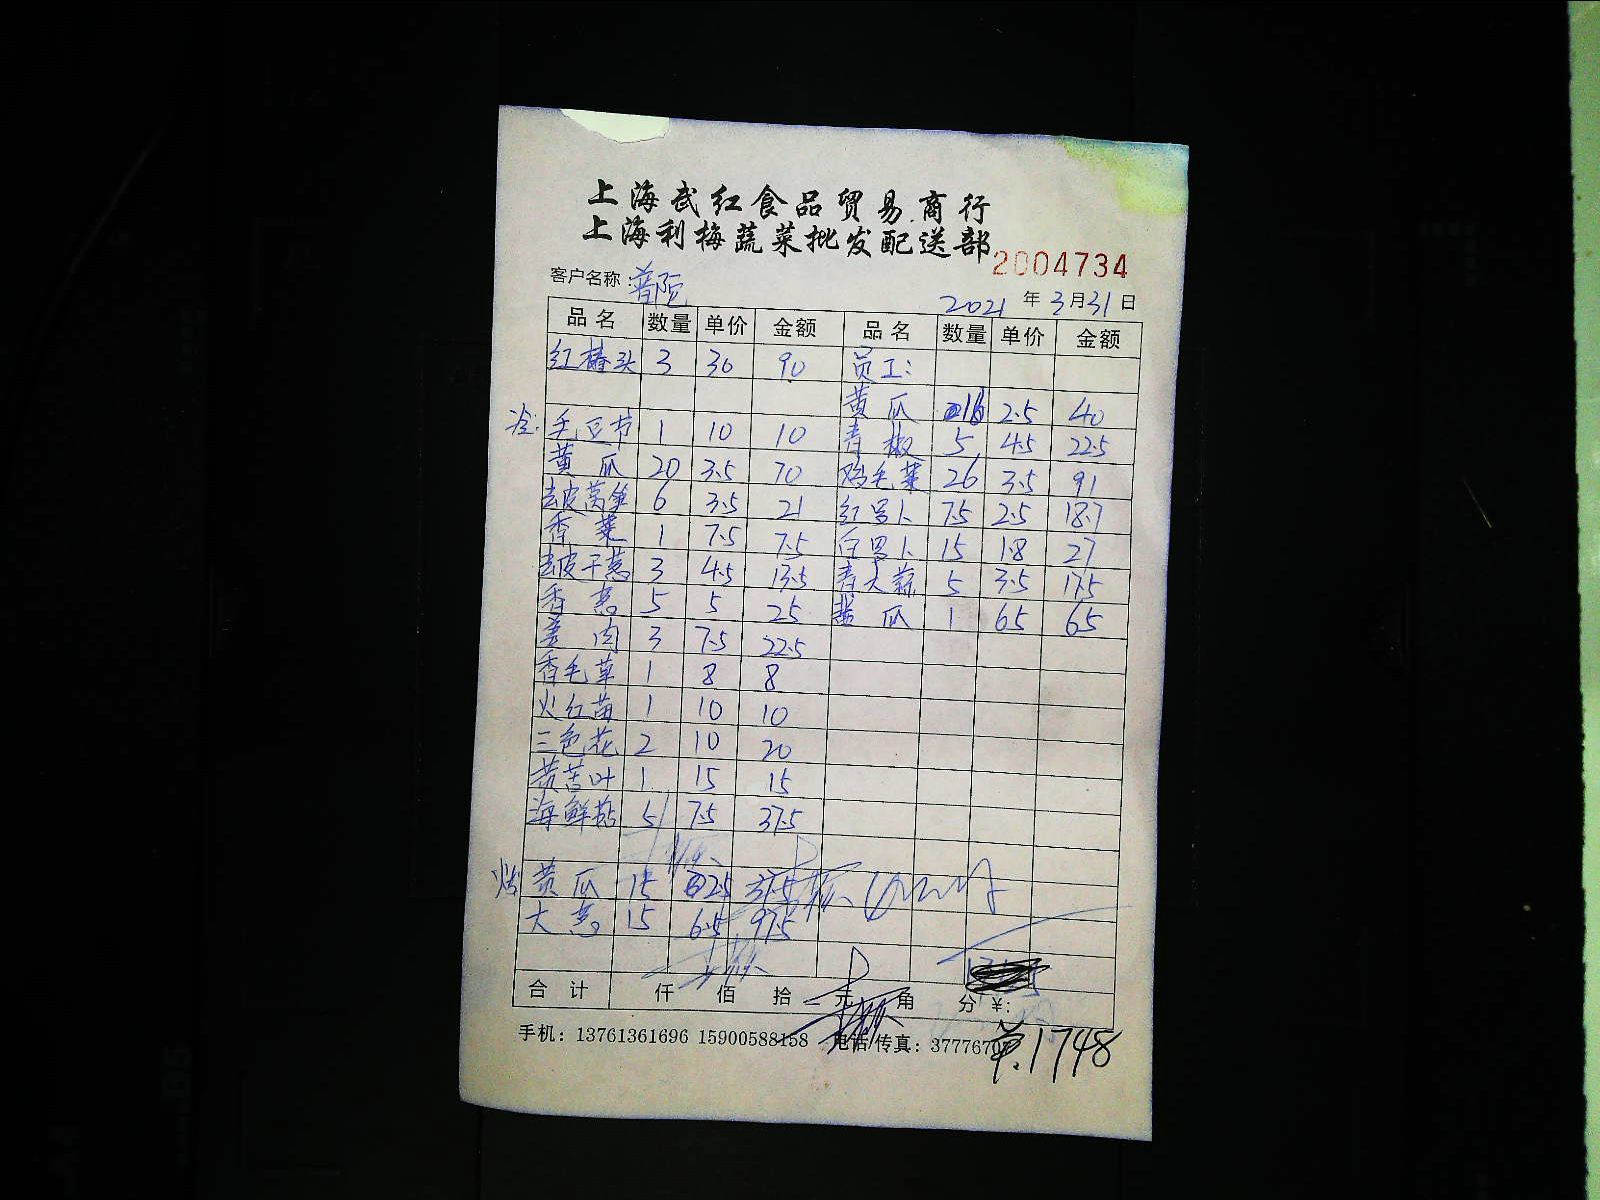 上海武红食品贸易商行
上海利梅蔬菜批发配送部
2004734
客户名称：普陀
2021 年 3 月 31 日
品名 数量 单价 金额 品名 数量 单价 金额
红椿头 3 30 90 员工：
黄瓜 16 2.5 40
冷：毛豆节 1 10 10 青椒 5 4.5 22.5
黄瓜 20 3.5 70 鸡毛菜 26 3.5 91
去皮莴笋 6 3.5 21 红罗卜 7.5 2.5 18.7
香菜 1 7.5 7.5 白罗卜 15 1.8 27
去皮干葱 3 4.5 13.5 青大蒜 5 3.5 17.5
香葱 5 5 25 瓜 1 65 65
姜肉 3 7.5 22.5
香毛草 1 8 8
火红苗 1 10 10
三色花 2 10 20
黄苦叶 1 15 15
海鲜菇 5 7.5 37.5
黄瓜 15 2.5 37.5
大葱 15 6.5 97.5
合计 仟 佰 拾 元 角 分 ¥：
手机：13761361696 15900588158 电话/传真：3777670
1748